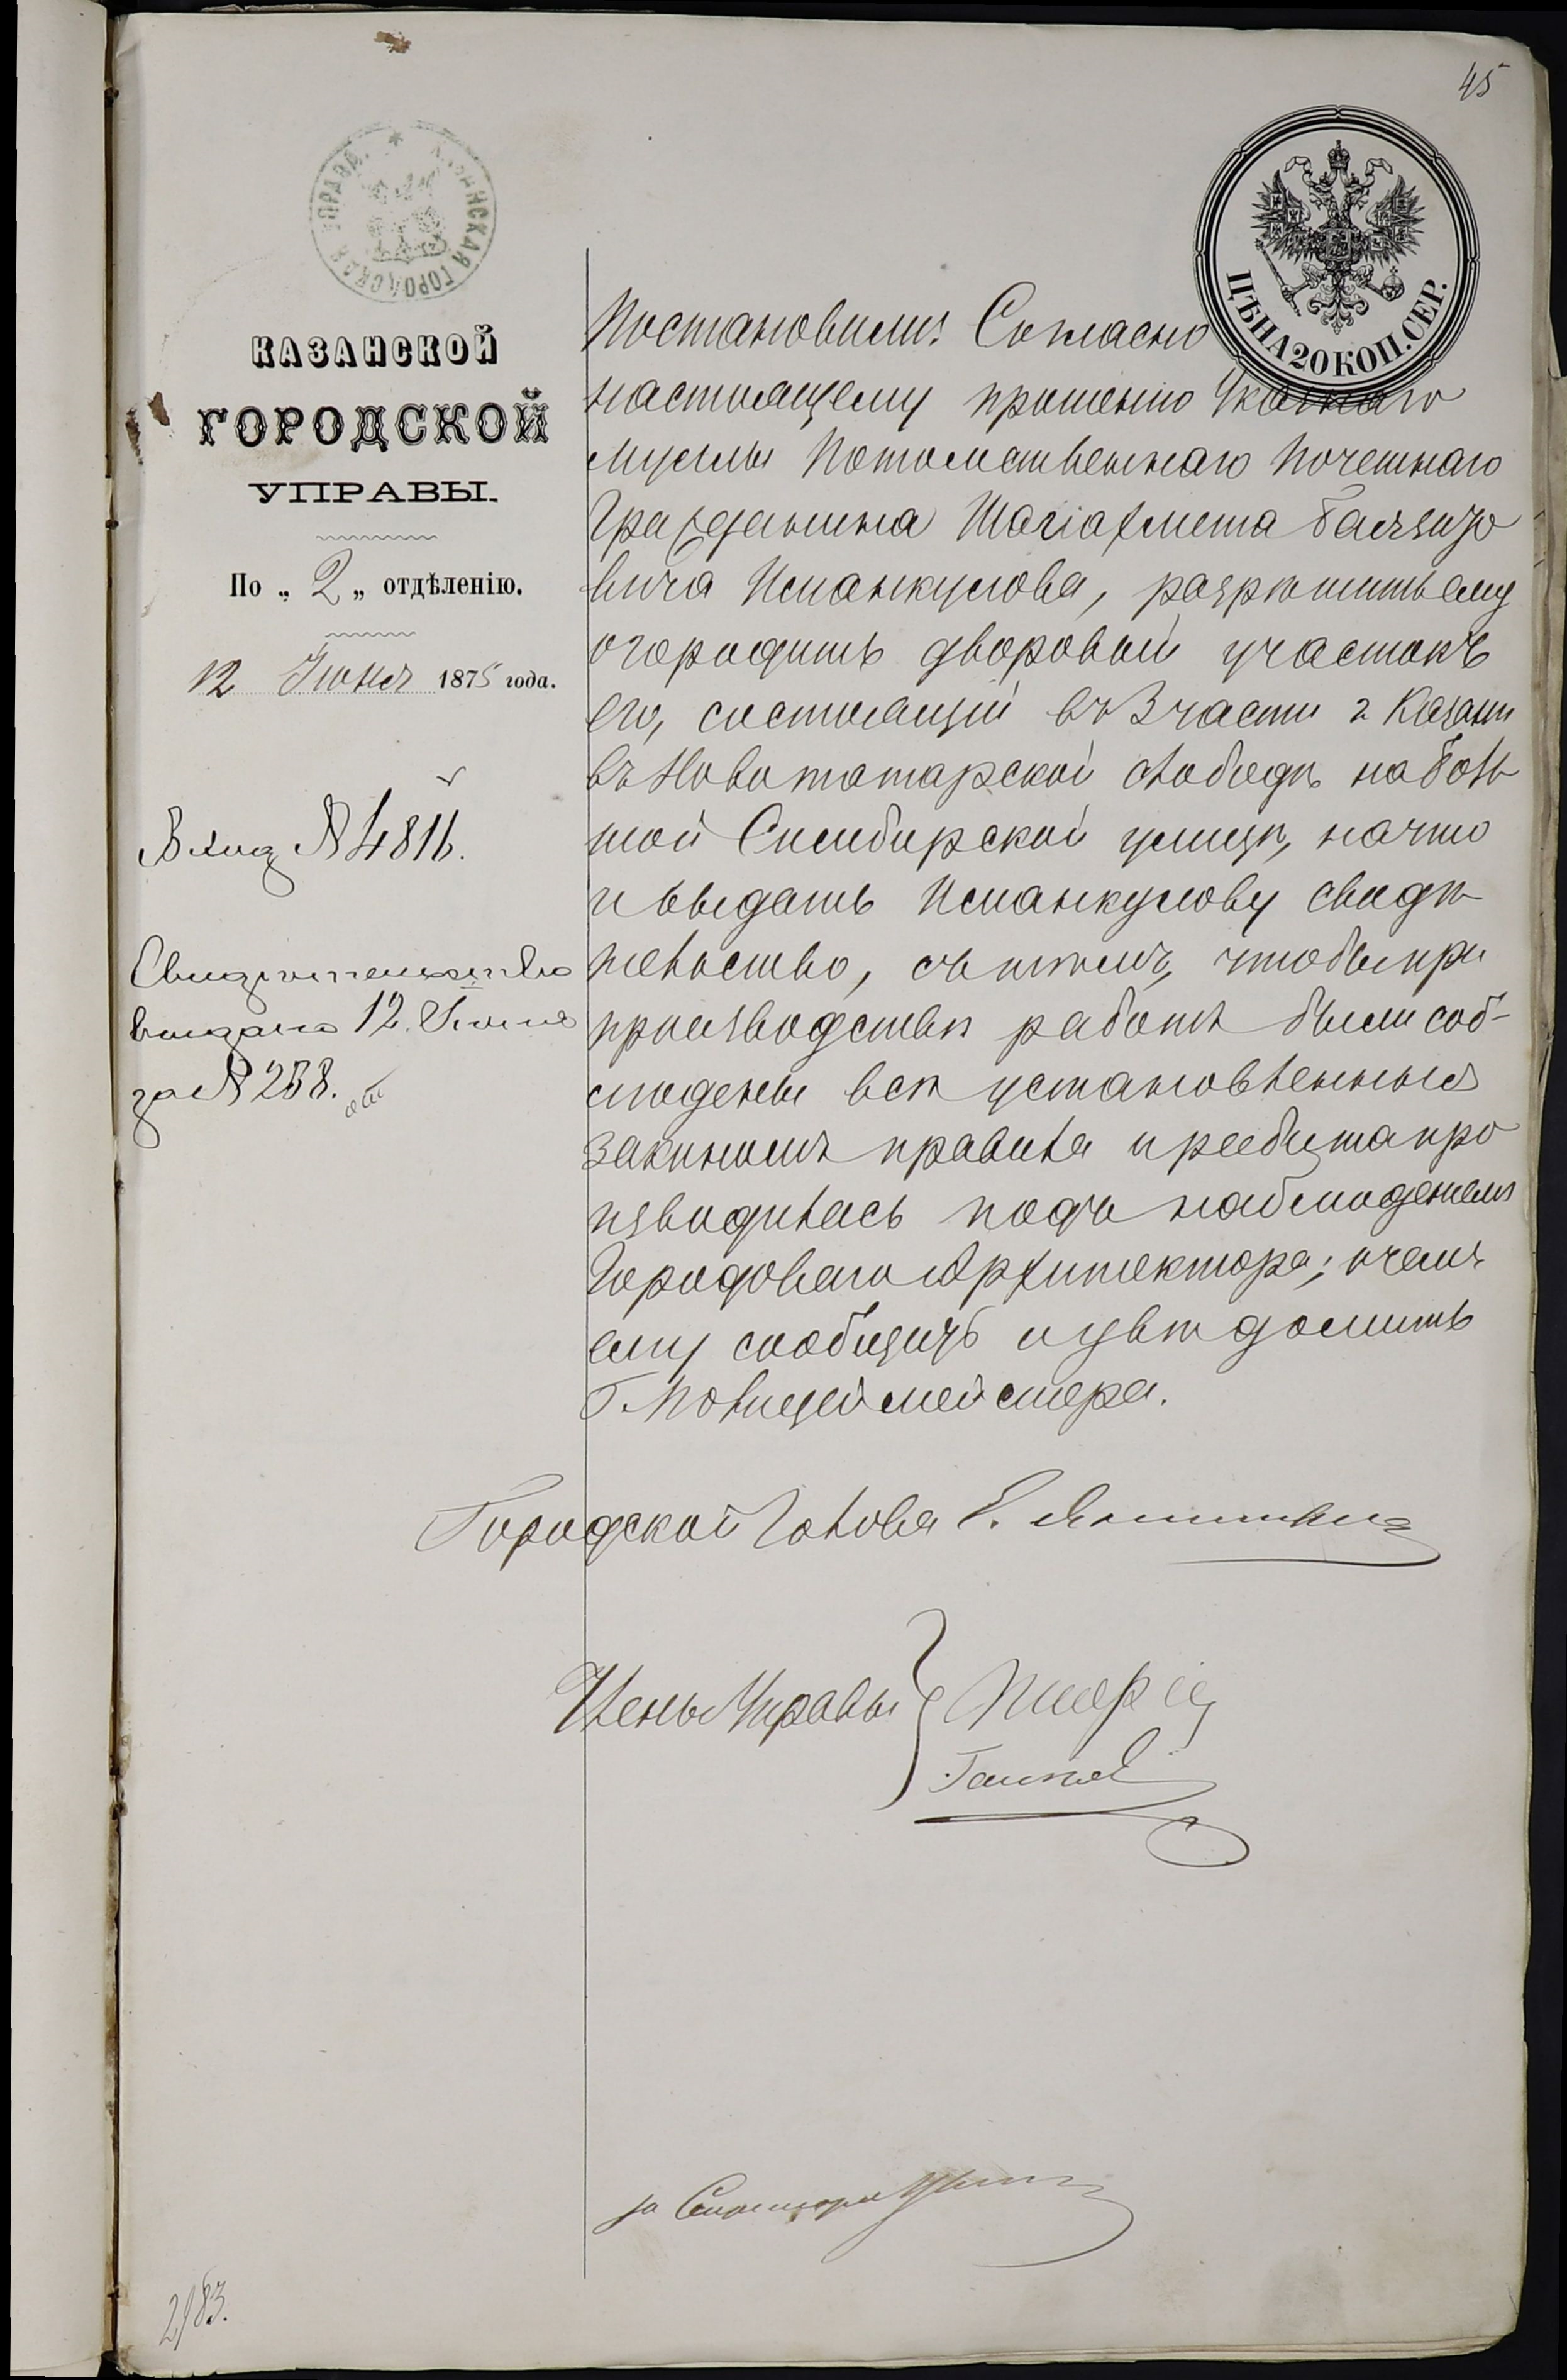 45
КАЗАНСКАЯ ГОРОДСКАЯ УПРАВА
ЦѢНА 20 КОП. СЕР.
КАЗАНСКОЙ
ГОРОДСКОЙ
УПРАВЫ.
По „ 2 „ отдѣленію.
12 Іюня 1875 года.
Вход № 4816.
Свидѣтельство
выдано 12. Іюня
за № 258.
Постановили: Согласно
настоящему прошенію Указнаго
муллы Потомственнаго Почетнаго
Гражданина Шагіахмета
вича Исманкулова, разрѣшить ему
огородить дворовый участокъ
его, состоящій въ 3 части г Казани
въ Новотатарской слободѣ на боль
шой Симбирской улицѣ, на что
и выдать Исманкулову свидѣ
тельство, съ тѣмъ, чтобы при
производствѣ работъ были соб-
людены всѣ установленныя
закономъ правила и работа про
изводилась подъ наблюденіемъ
Городоваго Архитектора; о чемъ
ему сообщить и увѣдомить
Г. Полицеймейстера.
Городской Голова Е.
Члены Управы
за Секретаря
2183.